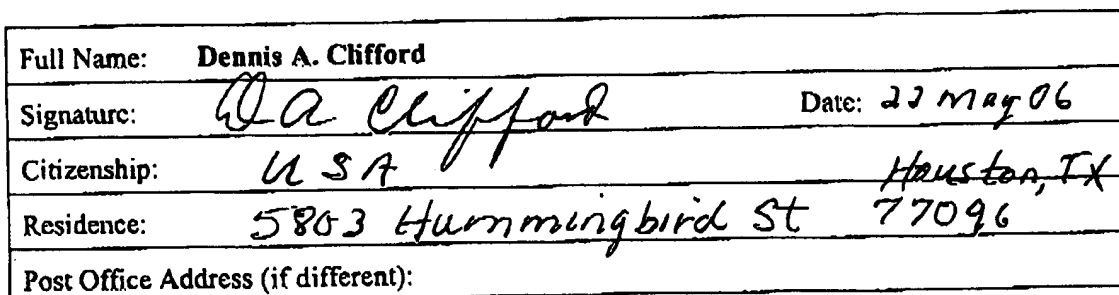 Full Name: Dennis A. Clifford
Signature: D A Clifford Date: 22 May 06
Citizenship: USA
Houston, TX
Residence: 5803 Hummingbird St 77096
Post Office Address (if different):